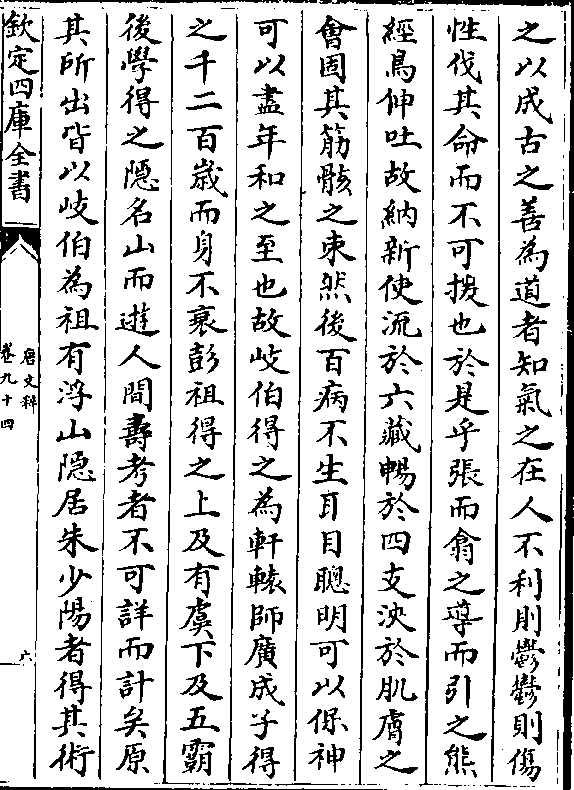 之以成古之善為道者知氣之在人不利則鬱鬱則傷
性伐其命而不可援也於是乎張而翕之導而引之熊
經鳥伸吐故納新使流於六藏暢於四支泱於肌膚之
會固其筋骸之束然後百病不生耳目聰明可以保神
可以盡年和之至也故岐伯得之為軒轅師廣成子得
之千二百歲而身不衰彭祖得之上及有虞下及五霸
後學得之隠名山而遊人間壽考者不可詳而計矣原
其所出皆以岐伯為祖有浮山隠居朱少陽者得其術
欽定四庫全書
唐文粹
卷九十四
六